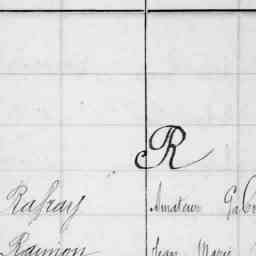 R
Rafray Amateur
Raimon Jean Marie